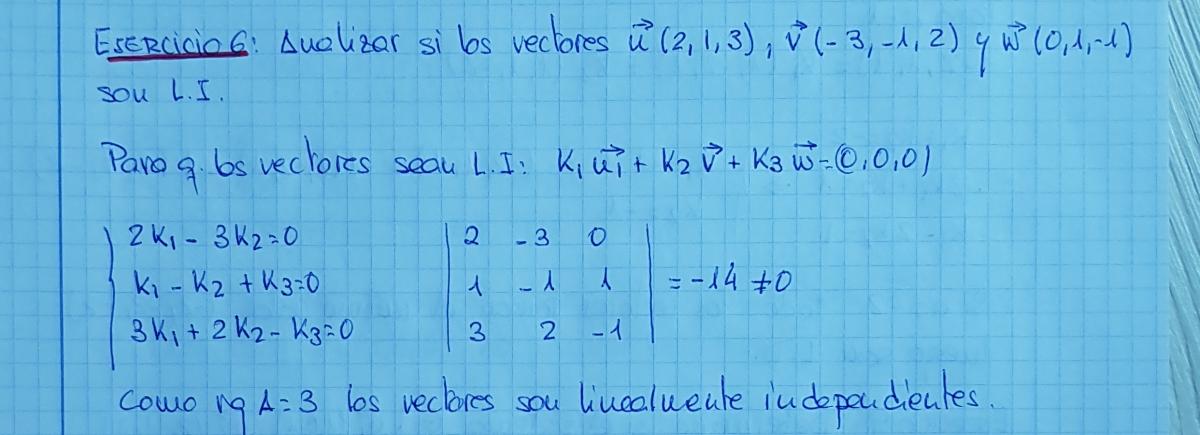 Ejercicio 6: Analizar si los vectores u⃗ (2,1,3), v⃗ (-3,-1,2) y w⃗ (0,1,-1)
son L.I.
Para q. los vectores sean L.I: K₁ u⃗₁ + K₂ v⃗ + K₃ w⃗ = (0,0,0)
2K₁ - 3K₂=0 | 2 -3 0 |
K₁ - K₂ + K₃=0 | 1 -1 1 | = -14 ≠0
3K₁ + 2K₂ - K₃=0 | 3 2 -1 |
Como rg A=3 los vectores son linealmente independientes.